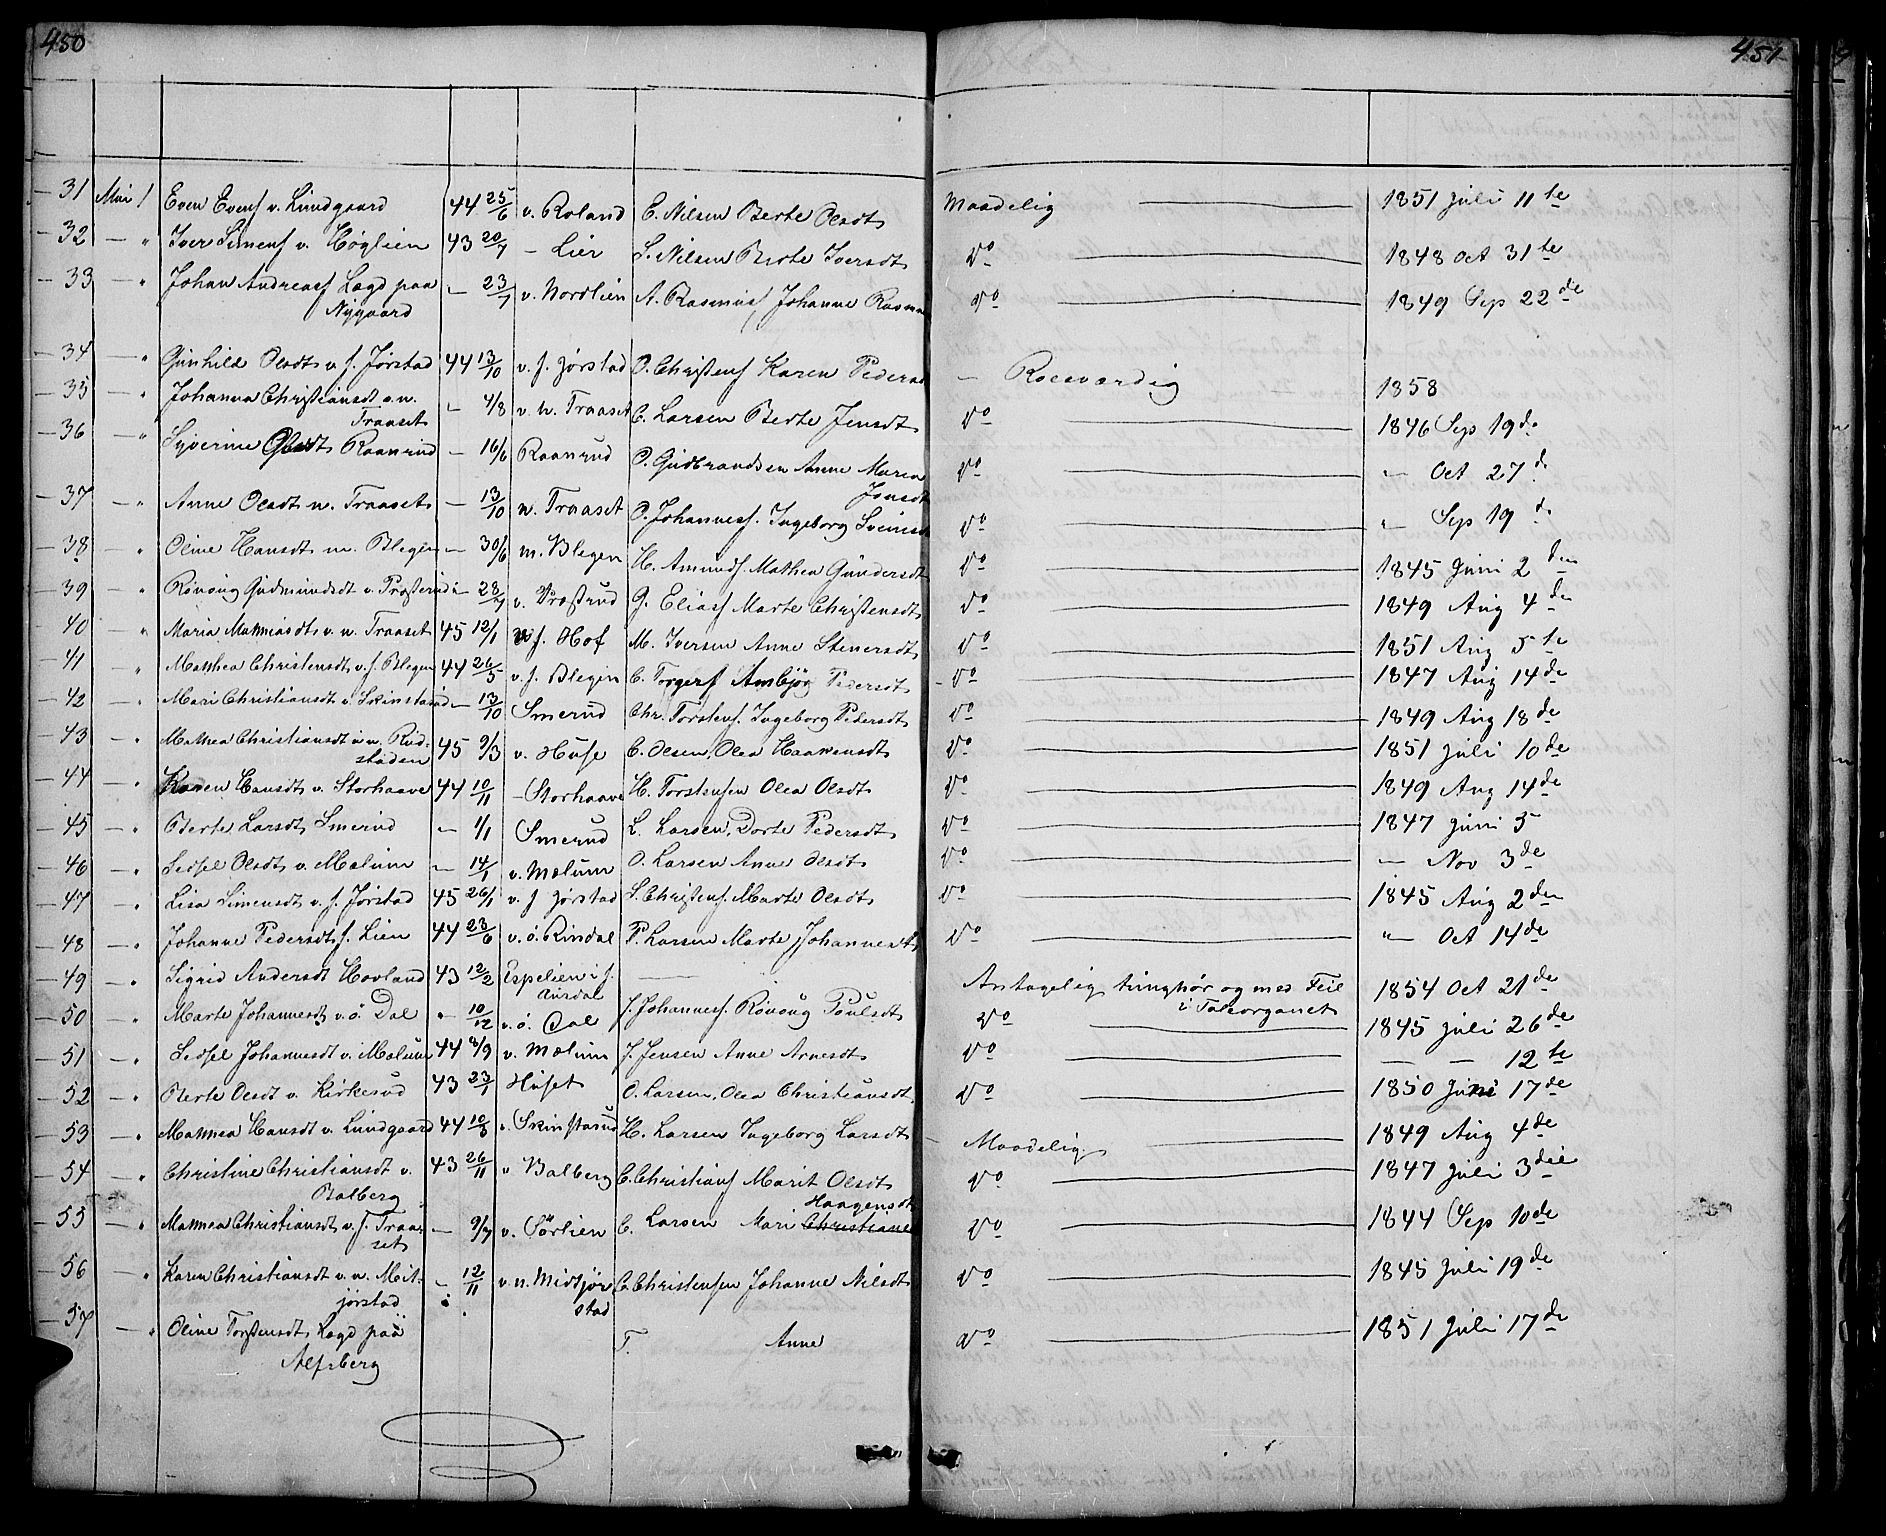 450
451
31 Mai / Even Evens v. Lundgaard 44 25/6 v. Roland E. Nilsen Berte Olsdt Maadelig 1851 Juli 11te
32 — " Iver Simens v. Höglien 43 20/7 — Lier S. Nilsen Berte Iversdt Do 1848 Oct 31te
33 — " Johan Andreass Lægd paa — 23/7 v. Nordlien A. Rasmuss Johanne Rasm Do 1849 Sep 22de
Nygaard
34 — " Gunhild Olsdt v. s. Jørstad 44 13/10 v. s. Jørstad O. Christens Karen Peders — Roesværdig 1858
35 — " Johanna Christiansdt v. n. — 4/8 v. n. Traaset C. Larsen Berte Jensdt Do 1846 Sep 19de
Traaset
36 " Syverine Olsdt Raanrud — 16/6 Raanrud O. Gudbrandsen Anne Maria Do — Oct 27d
Jonsdt
37 — " Anne Olsdt n. Traaset — 13/10 n. Traaset O. Johanness. Ingeborg Svends Do " Sep 19d
38 — " Oline Hansdt m. Blegen — 30/6 m. Blegen H. Amunds. Mathea Gundersdt Do 1845 Juni 2den
39 " Rönoug Gudmundsdt v. Præsterud — 28/7 v. Præstrud G. Eliass Marte Christensdt Do 1849 Aug 4de
40 " Maria Mathiasdt v. n. Traaset 45 12/1 s. Hof M. Iversen Anne Stenersdt Do 1851 Aug 5te
41 " Mathea Christensdt v. s. Blegen 44 26/5 v. s. Blegen C. Torgers Ambjør Pedersdt Do 1847 Aug 14de
42 " Mari Christiansdt v. Skinstad — 13/10 Smerud Chr. Torstens. Ingeborg Pedersdt Do 1849 Aug 18de
43 — " Mathea Christiansdt v. n. Rud- 45 9/3 v. Huse C. Olsen, Olea Haakensdt Do 1851 Juli 10de
staden
44 — " Karen Hansdt v. Storhaave 44 10/11 — Storhaave H. Torstensen Olea Olsdt Do 1849 Aug 14de
45 — " Berte Larsdt Smerud — 1/1 Smerud L. Larsen, Dorte Pedersdt Do 1847 Juni 5
46 — " Sidsel Olsdt v. Mælum — 14/1 v. Mælum O. Larsen Anne Olsdt Do — Nov 3de
47 — " Lisa Simensdt v. s. Jørstad 45 26/1 v. s Jørstad S. Christens. Marte Olsdt Do 1845 Aug 2den
48 — " Johanne Pedersdt s. Lien 44 23/6 v. ö. Rindal P. Larsen Marte Johannesdt Do " — Oct 14de
49 — " Sigrid Andersdt Hovland 43 12/2 Espelien i s. — Antagelig tunghør og med Feil 1854 Oct 21de
Ausdal i Taleorganet
50 — " Marte Johannesdt v. ö. Dal " 10/12 v. ö. Dal J. Johanness. Rönoug Poulsdt Do 1845 Juli 26de
51 — " Sidsel Johannesdt v. Mælum 44 8/9 v. Mælum J. Jensen Anne Arnesdt Do — — 12te
52 — " Berte Olsdt v. Kirkerud 43 23/1 Huset O. Larsen, Olea Christiansdt Do 1850 Juni 17de
53 — " Mathea Hansdt v. Lundgaard 44 10/8 v. Skinstarud H. Larsen Ingeborg Larsdt — Maadelig 1849 Aug 4de
54 — " Christine Christiansdt v. 43 26/11 v Balberg C. Christians Marit Olsdt Do 1847 Juli 3die
Balberg
Haagensdt
55 — " Mathea Christiansdt v. s. Traa- — 9/7 v. Sörlien C. Larsen Mari Christiane Do 1844 Sep 10de
set
56 — " Karen Christiansdt v. n. Mit- — 12/11 v. n. Midtjör C. Christensen Johanne Nilsdt Do 1845 Juli 19de
jørstad stad
57 — " Oline Torstensdt Lægd paa T. Anne Do 1851 Juli 17de
Alfsberg